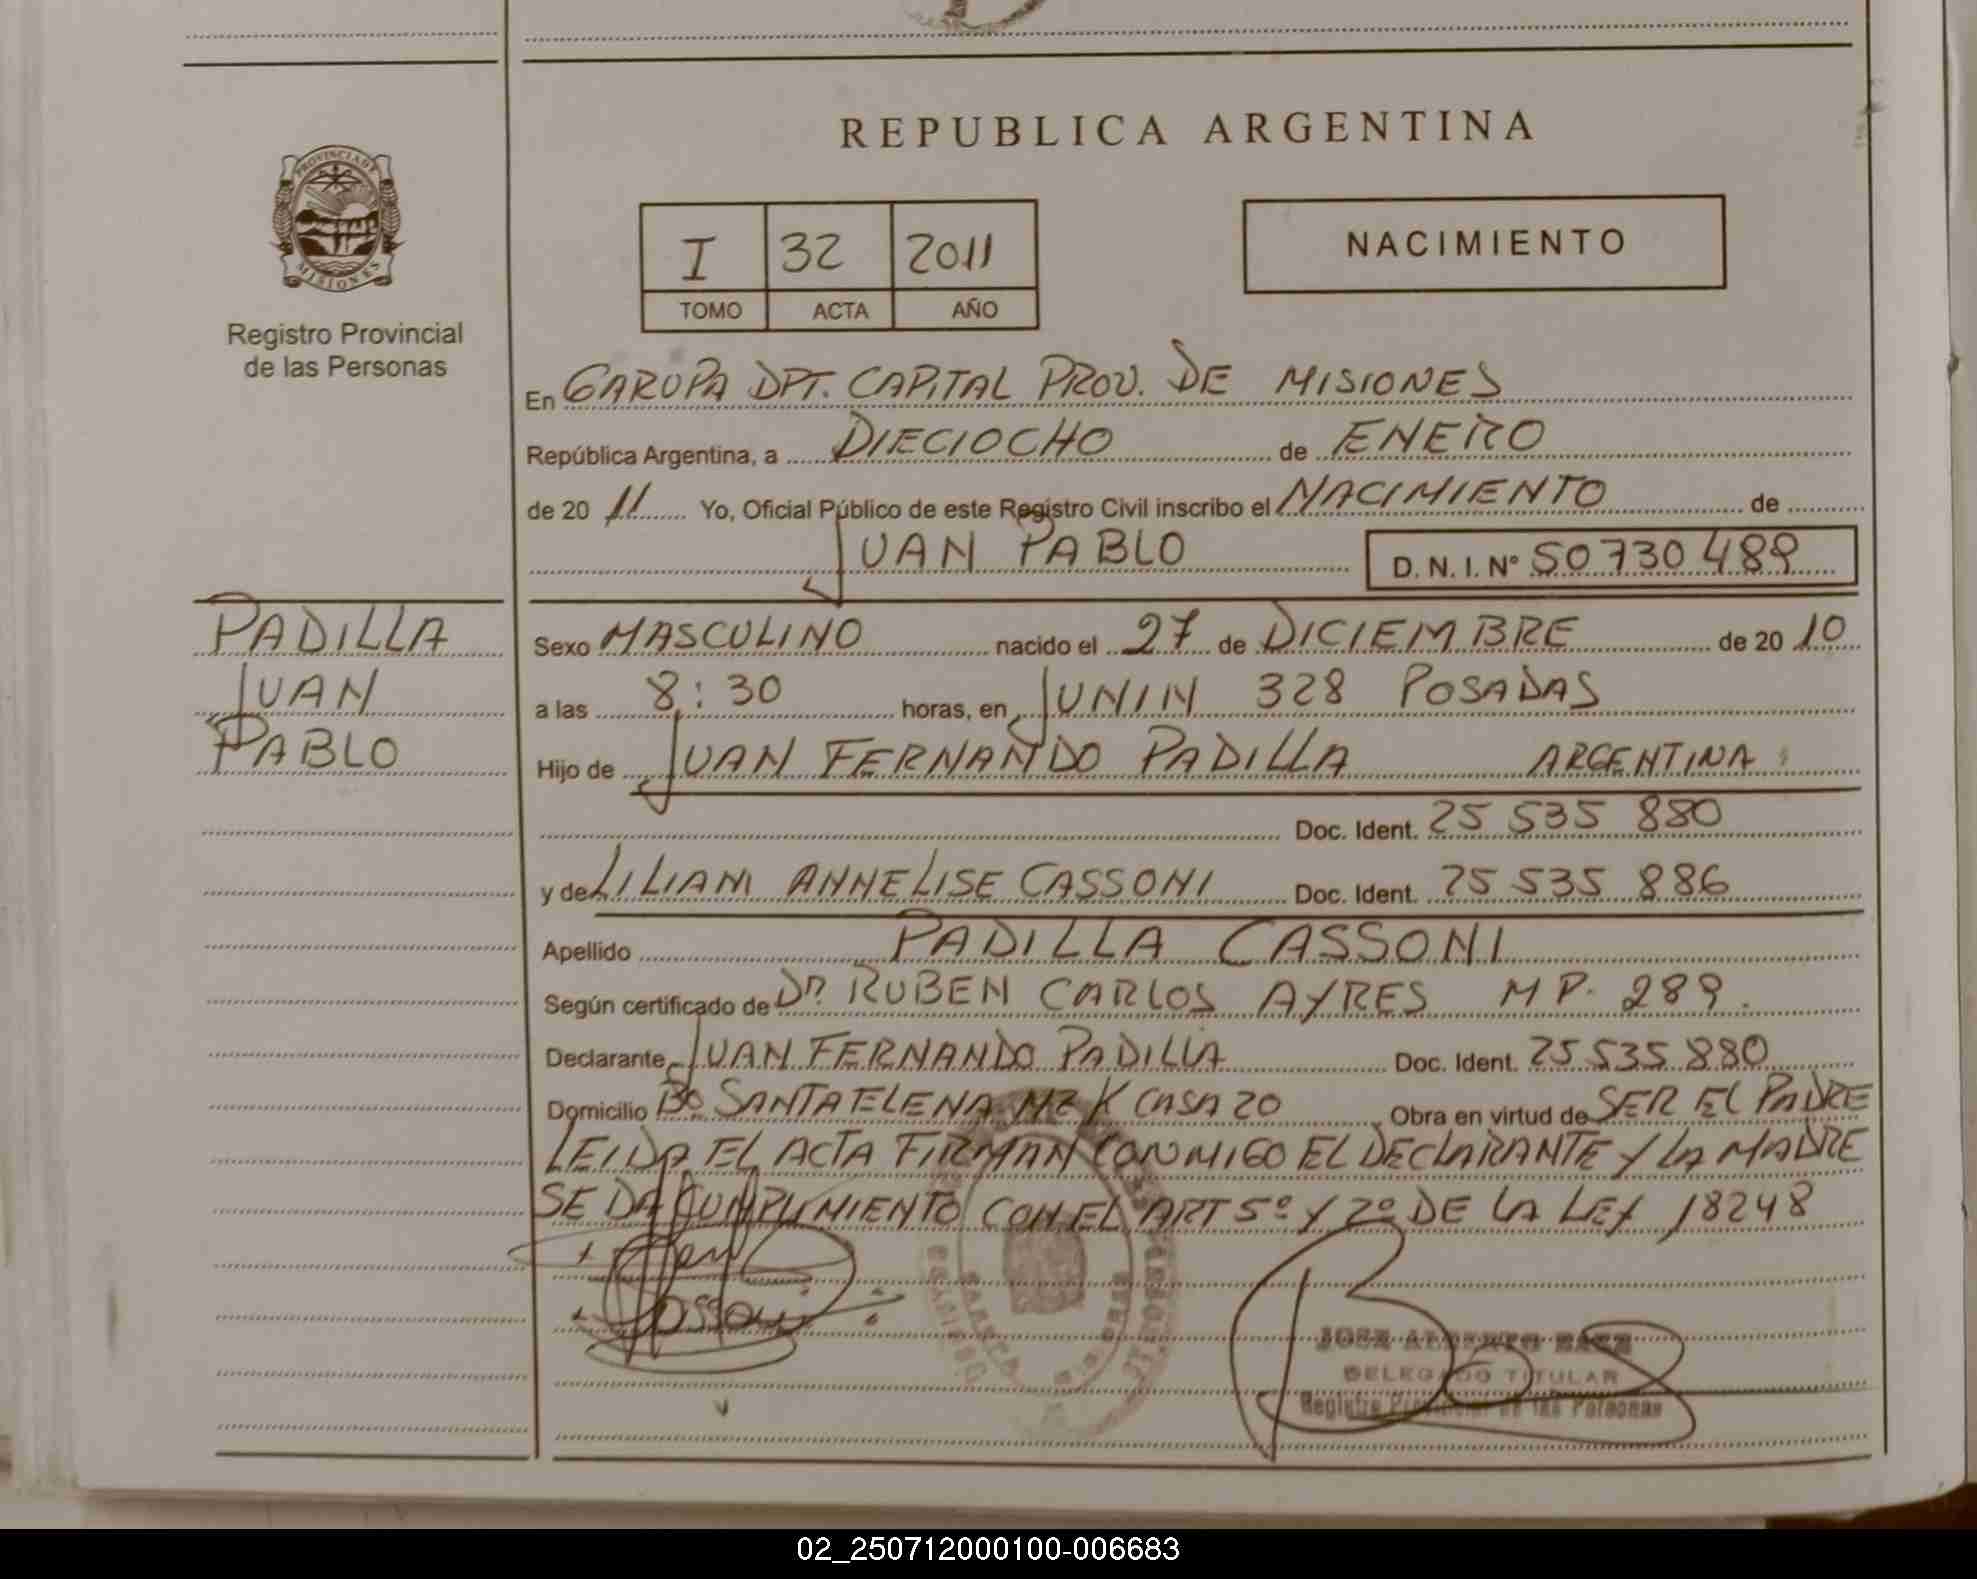 REPUBLICA ARGENTINA
PROVINCIA DE
MISIONES
Registro Provincial
de las Personas
I 32 2011
TOMO ACTA AÑO
NACIMIENTO
En GARUPA DPT. CAPITAL PROV. DE MISIONES
República Argentina, a DIECIOCHO de ENERO
de 20 11 Yo, Oficial Público de este Registro Civil inscribo el NACIMIENTO de
JUAN PABLO D. N. I. Nº 50 730 489
PADILLA
JUAN
PABLO
Sexo MASCULINO nacido el 27 de DICIEMBRE de 20 10
a las 8:30 horas, en JUNIN 328 POSADAS
Hijo de JUAN FERNANDO PADILLA ARGENTINA
Doc. Ident. 25 535 880
y de LILIAN ANNELISE CASSONI Doc. Ident. 25 535 886
Apellido PADILLA CASSONI
Según certificado de Dr. RUBEN CARLOS AYRES MP. 289.
Declarante JUAN FERNANDO PADILLA Doc. Ident. 25 535 880
Domicilio Bº SANTA ELENA MZ K CASA 20 Obra en virtud de SER EL PADRE
LEIDA EL ACTA FIRMAN CONMIGO EL DECLARANTE Y LA MADRE
SE DA CUMPLIMIENTO CON EL ART 5º Y 2º DE LA LEY 18248
JOSE ALBERTO BAEZ
DELEGADO TITULAR
Registro Provincial de las Personas
02_250712000100-006683